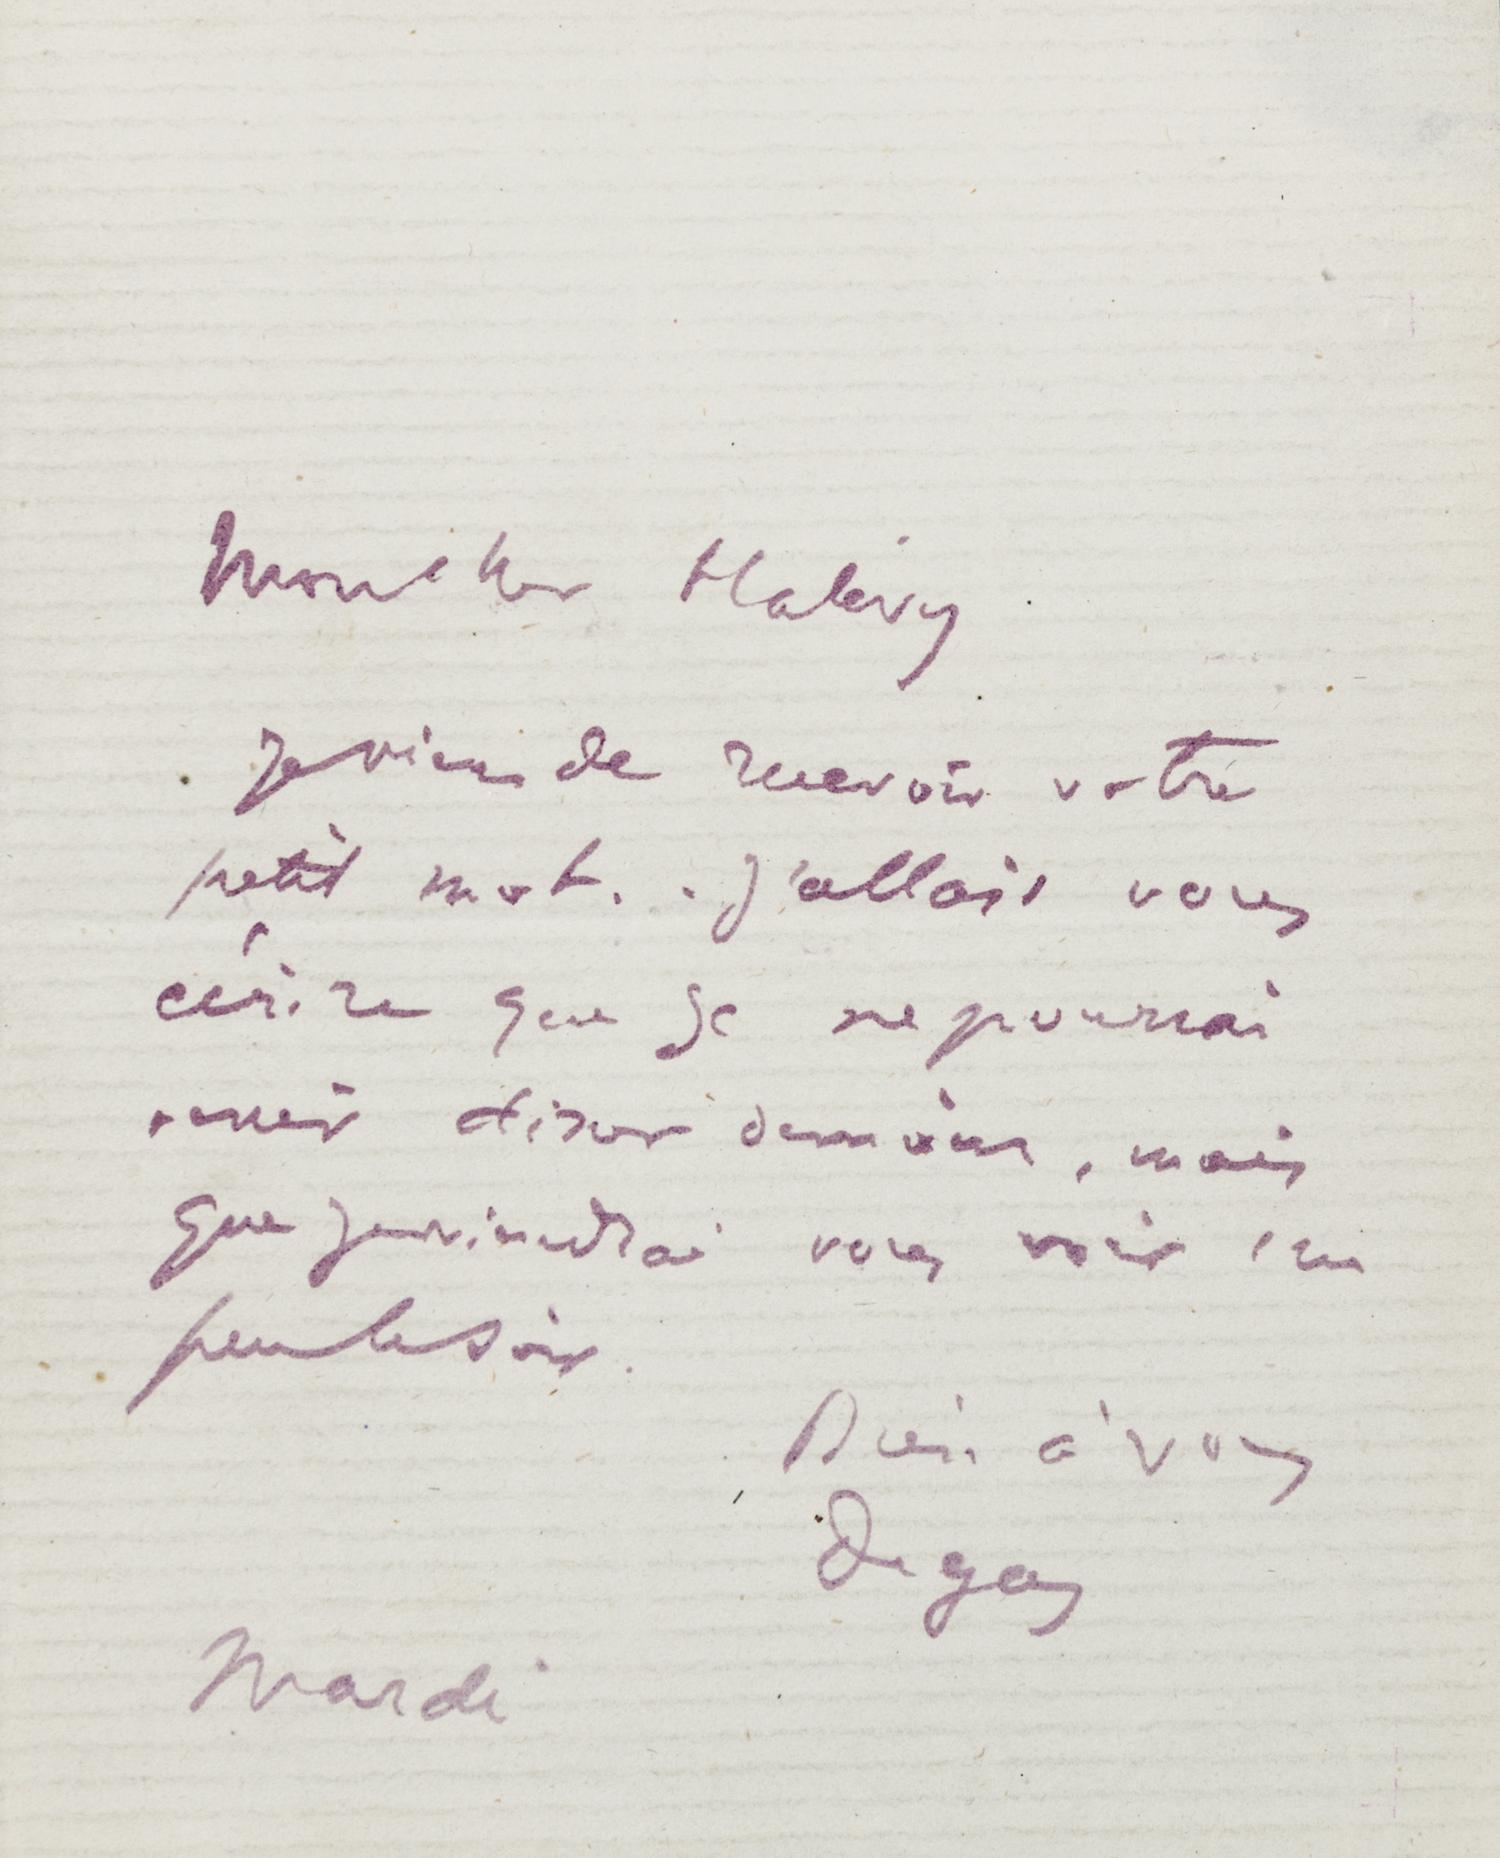 Mon cher Halévy
Je viens de recevoir votre
petit mot. J'allais vous
écrire que je ne pourrai
venir dîner demain, mais
que je viendrai vous voir un
peu le soir.
Bien à vous
Degas
Mardi